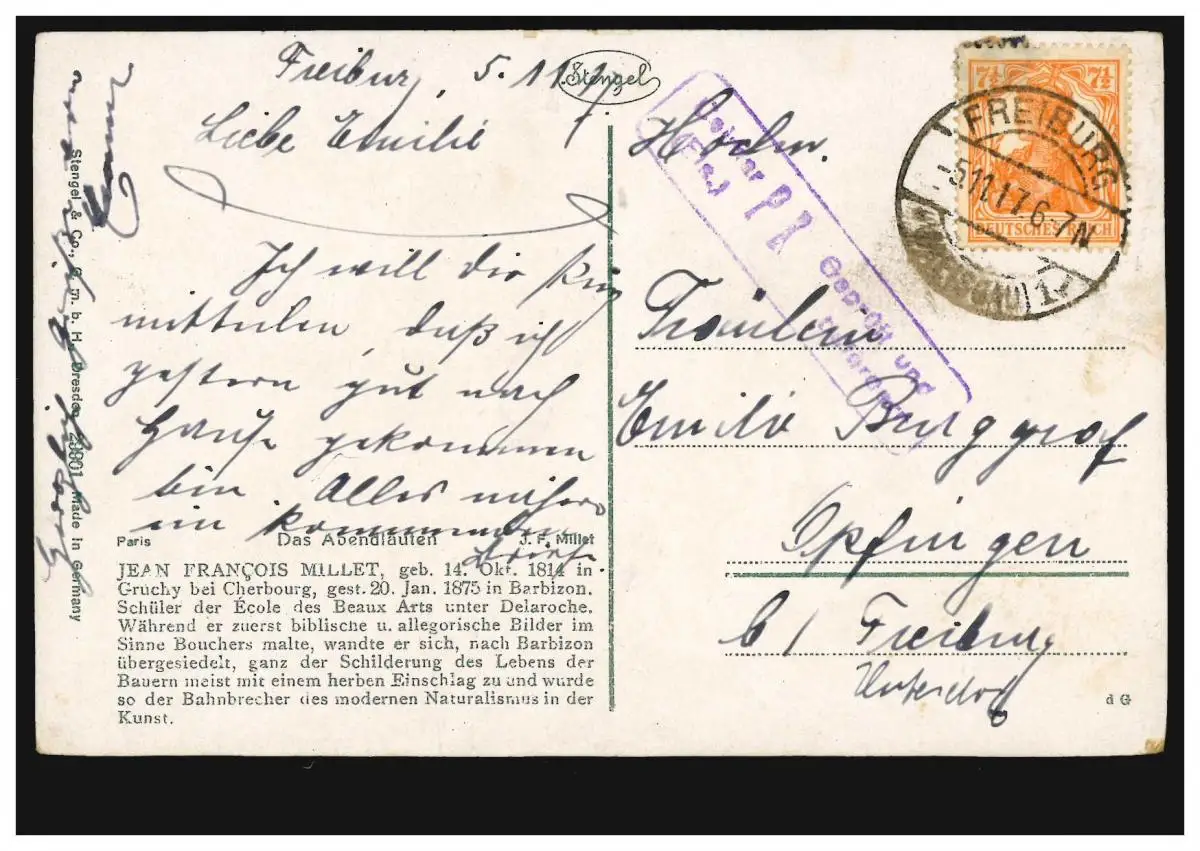 Freiburg, 5.11.17
Stengel
Liebe Emilie
Ich will dir kurz
mitteilen, daß ich
gestern gut nach
Hause gekommen
bin. Alles
im kommenden
Briefe
Paris Das Abendläuten J. F. Millet
JEAN FRANÇOIS MILLET, geb. 14. Okt. 1814 in
Gruchy bei Cherbourg, gest. 20. Jan. 1875 in Barbizon.
Schüler der École des Beaux Arts unter Delaroche.
Während er zuerst biblische u. allegorische Bilder im
Sinne Bouchers malte, wandte er sich, nach Barbizon
übergesiedelt, ganz der Schilderung des Lebens der
Bauern meist mit einem herben Einschlag zu und wurde
so der Bahnbrecher des modernen Naturalismus in der
Kunst.
Stengel & Co., G. m. b. H., Dresden 29801 Made in Germany
Hochw.
Fräulein
Emilie Burggraf
Opfingen
b/ Freiburg
Unterdorf
d G
7½ 7½
DEUTSCHES REICH
FREIBURG
-5.11.17.6-7N
(BREISGAU) 1
Geprüft und